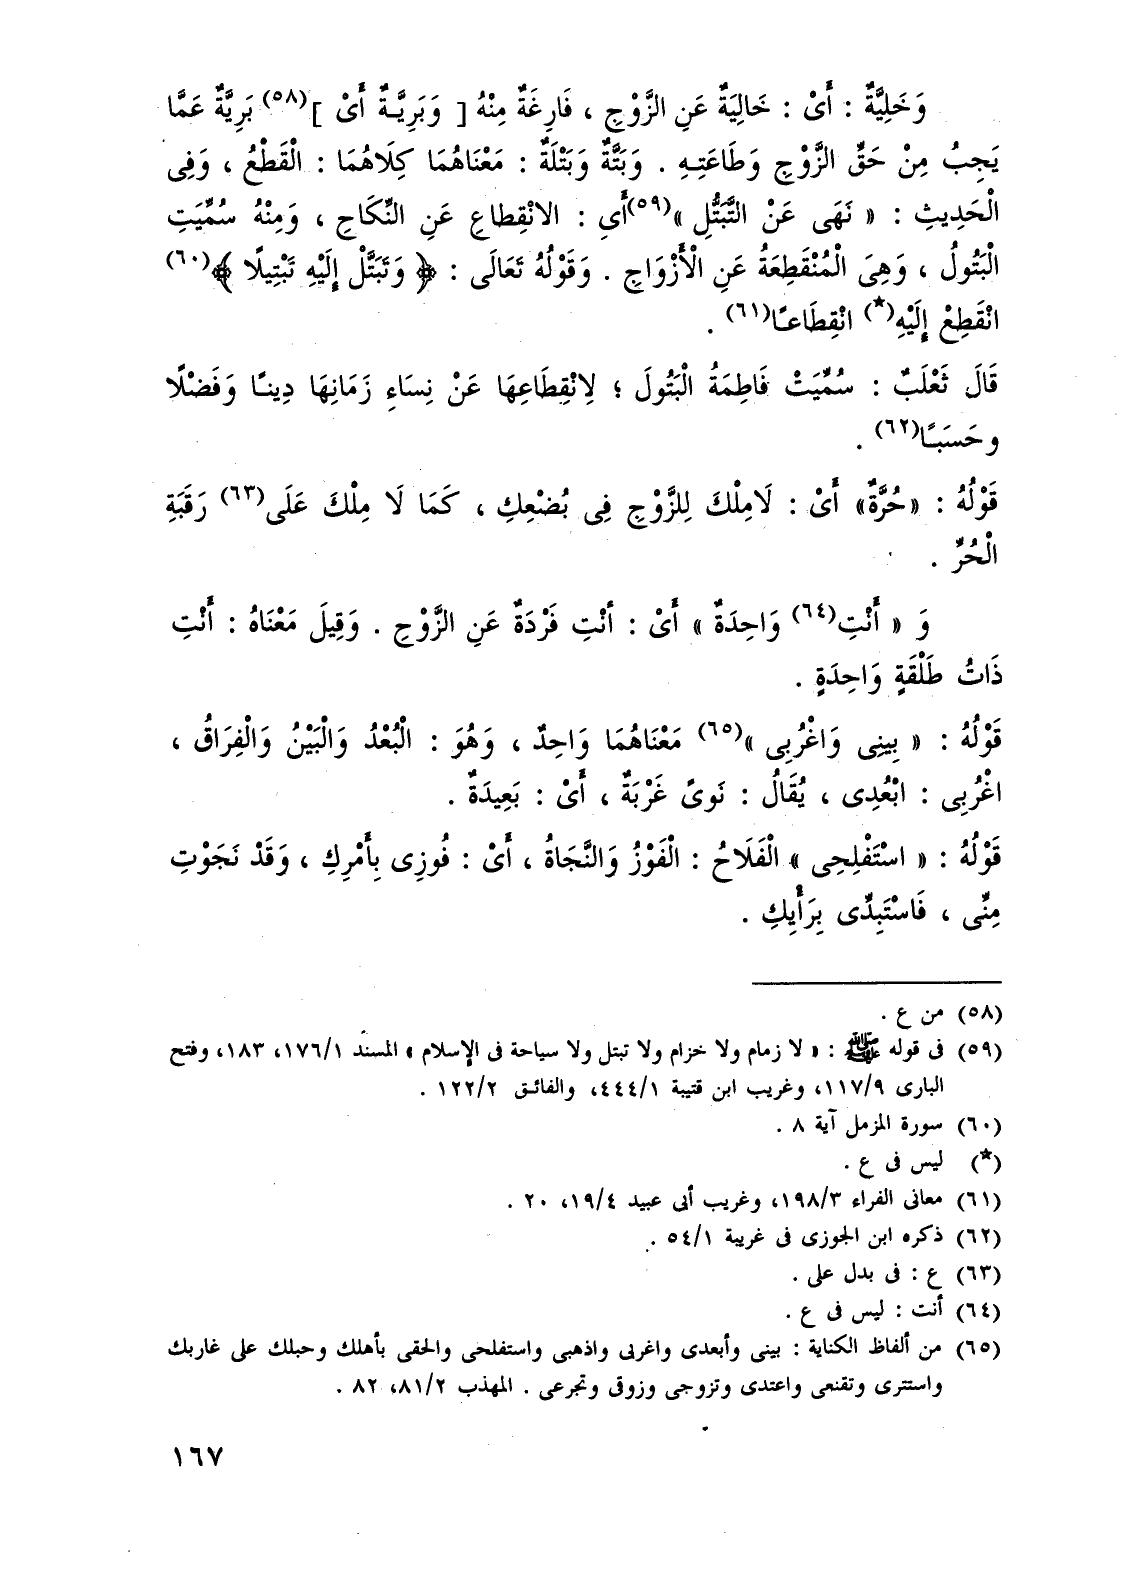 وَخَلِيَّةٌ : أَىْ : خَالِيَةٌ عَنِ الزَّوْجِ ، فَارِغَةٌ مِنْهُ [ وَبَرِيَّةٌ أَىْ ](٥٨) بَرِيَّةٌ عَمَّا
يَجِبُ مِنْ حَقِّ الزَّوْجِ وَطَاعَتِهِ . وَبَتَّةٌ وَبَتْلَةٌ : مَعْنَاهُمَا كِلَاهُمَا : الْقَطْعُ ، وَفِى
الْحَدِيثِ : « نَهَى عَنْ التَّبَتُّلِ »(٥٩)أَىِ : الانْقِطاعِ عَنِ النِّكَاحِ ، وَمِنْهُ سُمِّيَتِ
الْبَتُولُ ، وَهِىَ الْمُنْقَطِعَةُ عَنِ الْأَزْوَاجِ . وَقَوْلُهُ تَعَالَى : ﴿ وَتَبَتَّلْ إِلَيْهِ تَبْتِيلًا ﴾(٦٠)
انْقَطِعْ إِلَيْهِ(*) انْقِطَاعًا(٦١) .
قَالَ ثَعْلَبٌ : سُمِّيَتْ فَاطِمَةُ الْبَتُولَ ؛ لِانْقِطَاعِهَا عَنْ نِسَاءِ زَمَانِهَا دِينًا وَفَضْلًا
وحَسَبًا(٦٢) .
قَوْلُهُ : «حُرَّةٌ» أَىْ : لَامِلْكَ لِلزَّوْجِ فِى بُضْعِكِ ، كَمَا لَا مِلْكَ عَلَى(٦٣) رَقَبَةِ
الْحُرِّ .
وَ « أَنْتِ(٦٤) وَاحِدَةٌ » أَىْ : أنْتِ فَرْدَةٌ عَنِ الزَّوْجِ . وَقِيلَ مَعْنَاهُ : أَنْتِ
ذَاتُ طَلْقَةٍ وَاحِدَةٍ .
قَوْلُهُ : « بِينِى وَاغْرُبِى »(٦٥) مَعْنَاهُمَا وَاحِدٌ ، وَهُوَ : الْبُعْدُ وَالْبَيْنُ وَالْفِرَاقُ ،
اغْرُبِى : ابْعُدِى ، يُقَالُ : نَوىً غَرْبَةٌ ، أَىْ : بَعِيدَةٌ .
قَوْلُهُ : « اسْتَفْلِحِى » الْفَلَاحُ : الْفَوْزُ وَالنَّجَاةُ ، أَىْ : فُوزِى بِأَمْرِكِ ، وَقَدْ نَجَوْتِ
مِنِّى ، فَاسْتَبِدِّى بِرَأْيِكِ .
(٥٨) من ع .
(٥٩) فى قوله ﷺ : « لا زمام ولا خزام ولا تبتل ولا سياحة فى الإسلام » المسند ١٧٦/١، ١٨٣، وفتح
البارى ١١٧/٩، وغريب ابن قتيبة ٤٤٤/١، والفائق ١٢٢/٢ .
(٦٠) سورة المزمل آية ٨ .
(*) ليس فى ع .
(٦١) معانى الفراء ١٩٨/٣، وغريب أبى عبيد ١٩/٤، ٢٠ .
(٦٢) ذكره ابن الجوزى فى غريبة ٥٤/١ .
(٦٣) ع : فى بدل على .
(٦٤) أنت : ليس فى ع .
(٦٥) من ألفاظ الكناية : بينى وأبعدى واغربى واذهبى واستفلحى والحقى بأهلك وحبلك على غاربك
واستترى وتقنعى واعتدى وتزوجى وزوقى وتجرعى . المهذب ٨١/٢، ٨٢ .
١٦٧